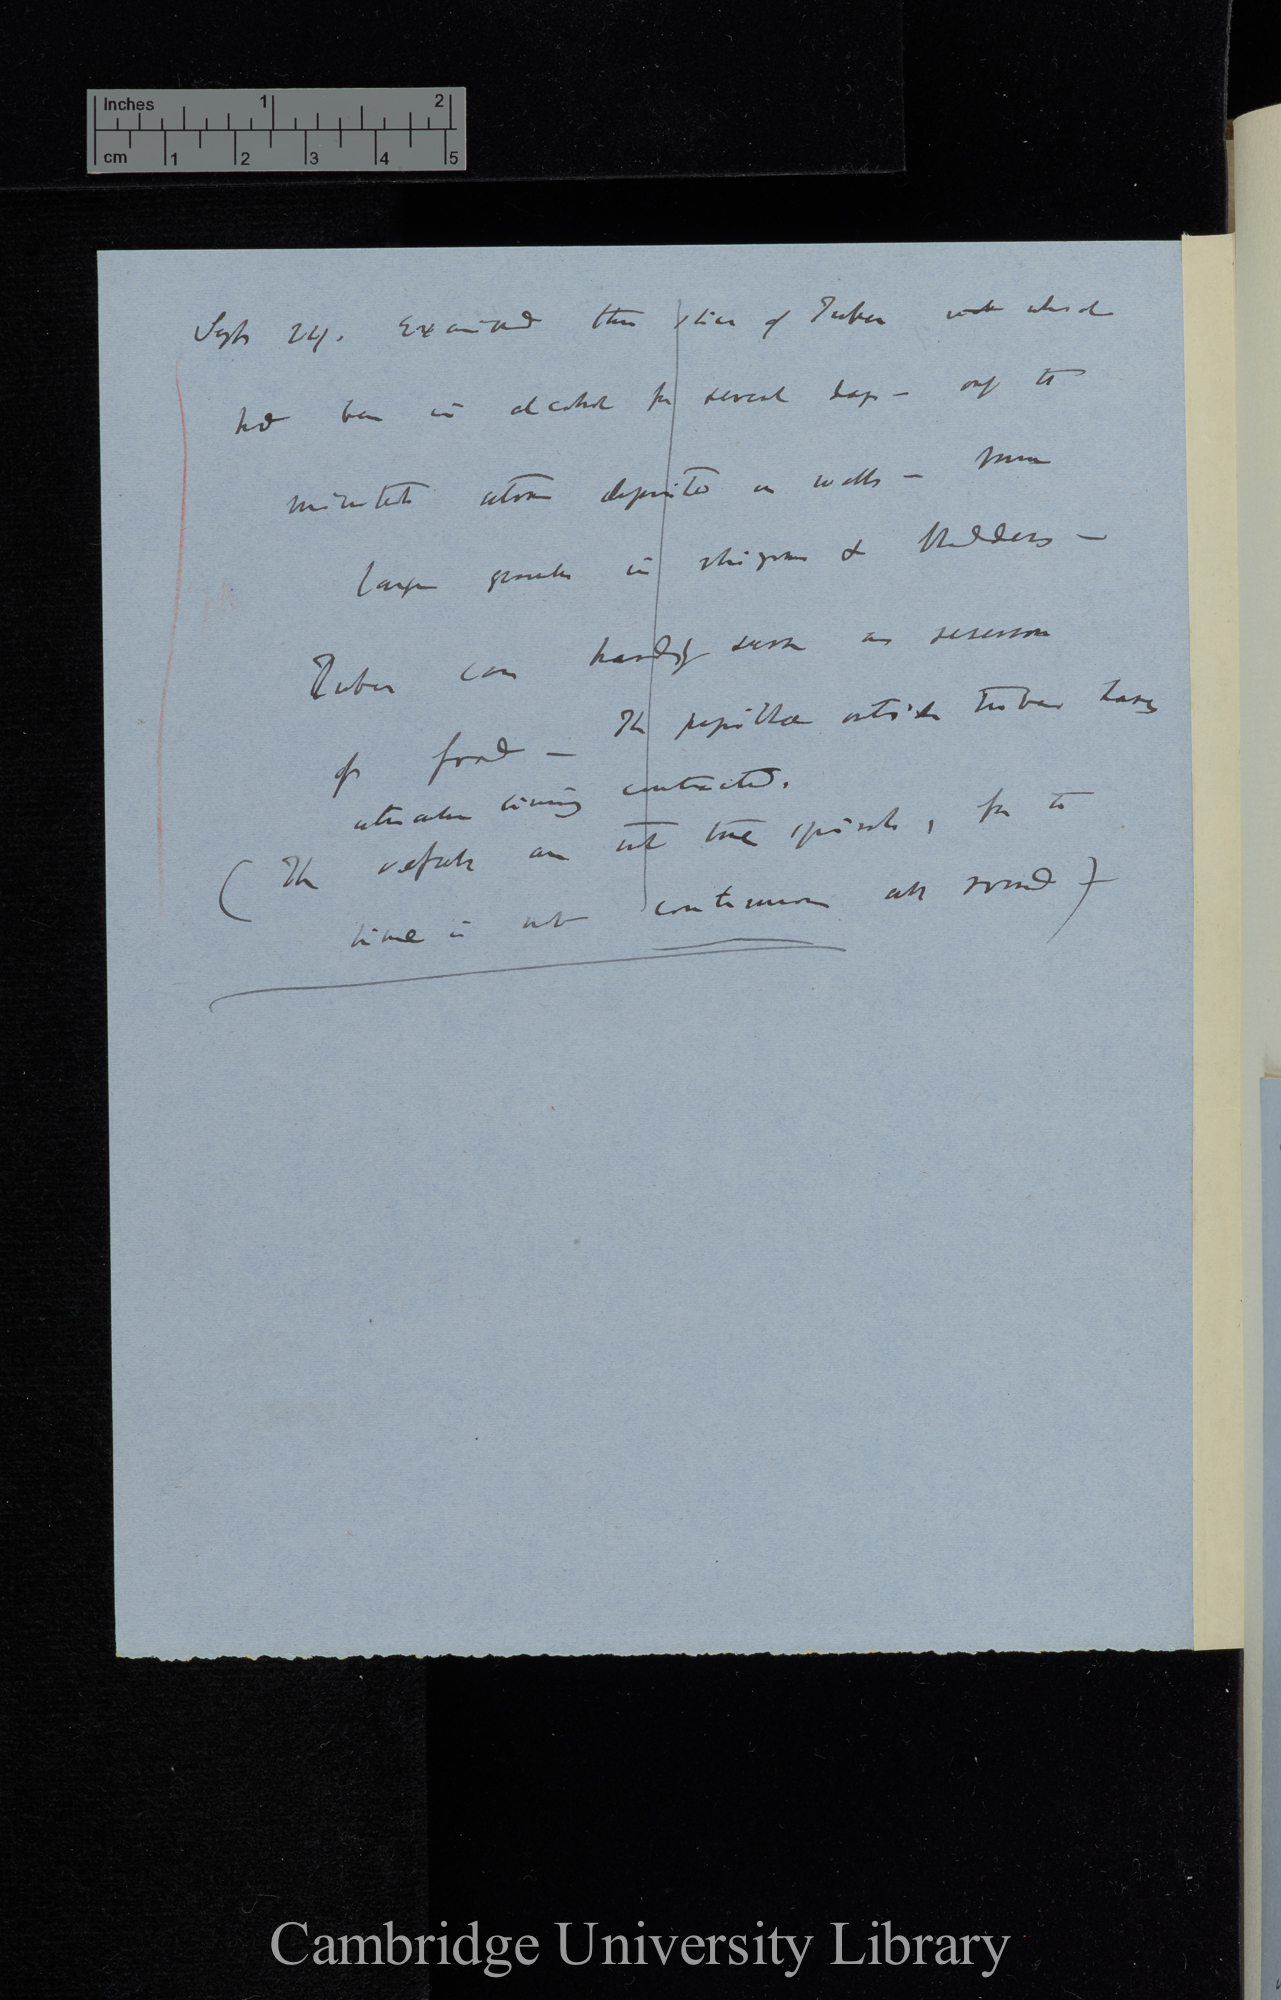 Inches 1 2
cm 1 2 3 4 5
Sept 24. Examined thin slice of Tuber which
had been in alcohol for several days — only the
minutest atoms deposited on walls — some
larger granules in rhizomes & bladders —
Tuber can hardly serve as reservoir
of food — The papillae outside tuber have
utricular lining contracted.
(The vessels are not true spirals, for the
line is not continuous all round)
Cambridge University Library